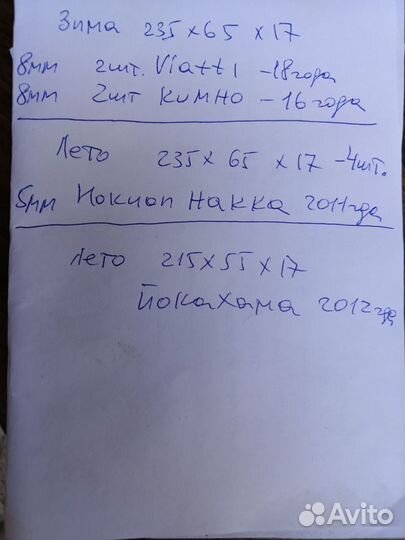 Зима 235 х 65 х 17
8мм 2шт. Viatti - 18 года
8мм 2шт Кимно - 16 года
Лето 235 х 65 х 17 - 4шт.
5мм Нокиоп Накка 2011 года
Лето 215 х 55 х 17
Йокахама 2012 года
Avito